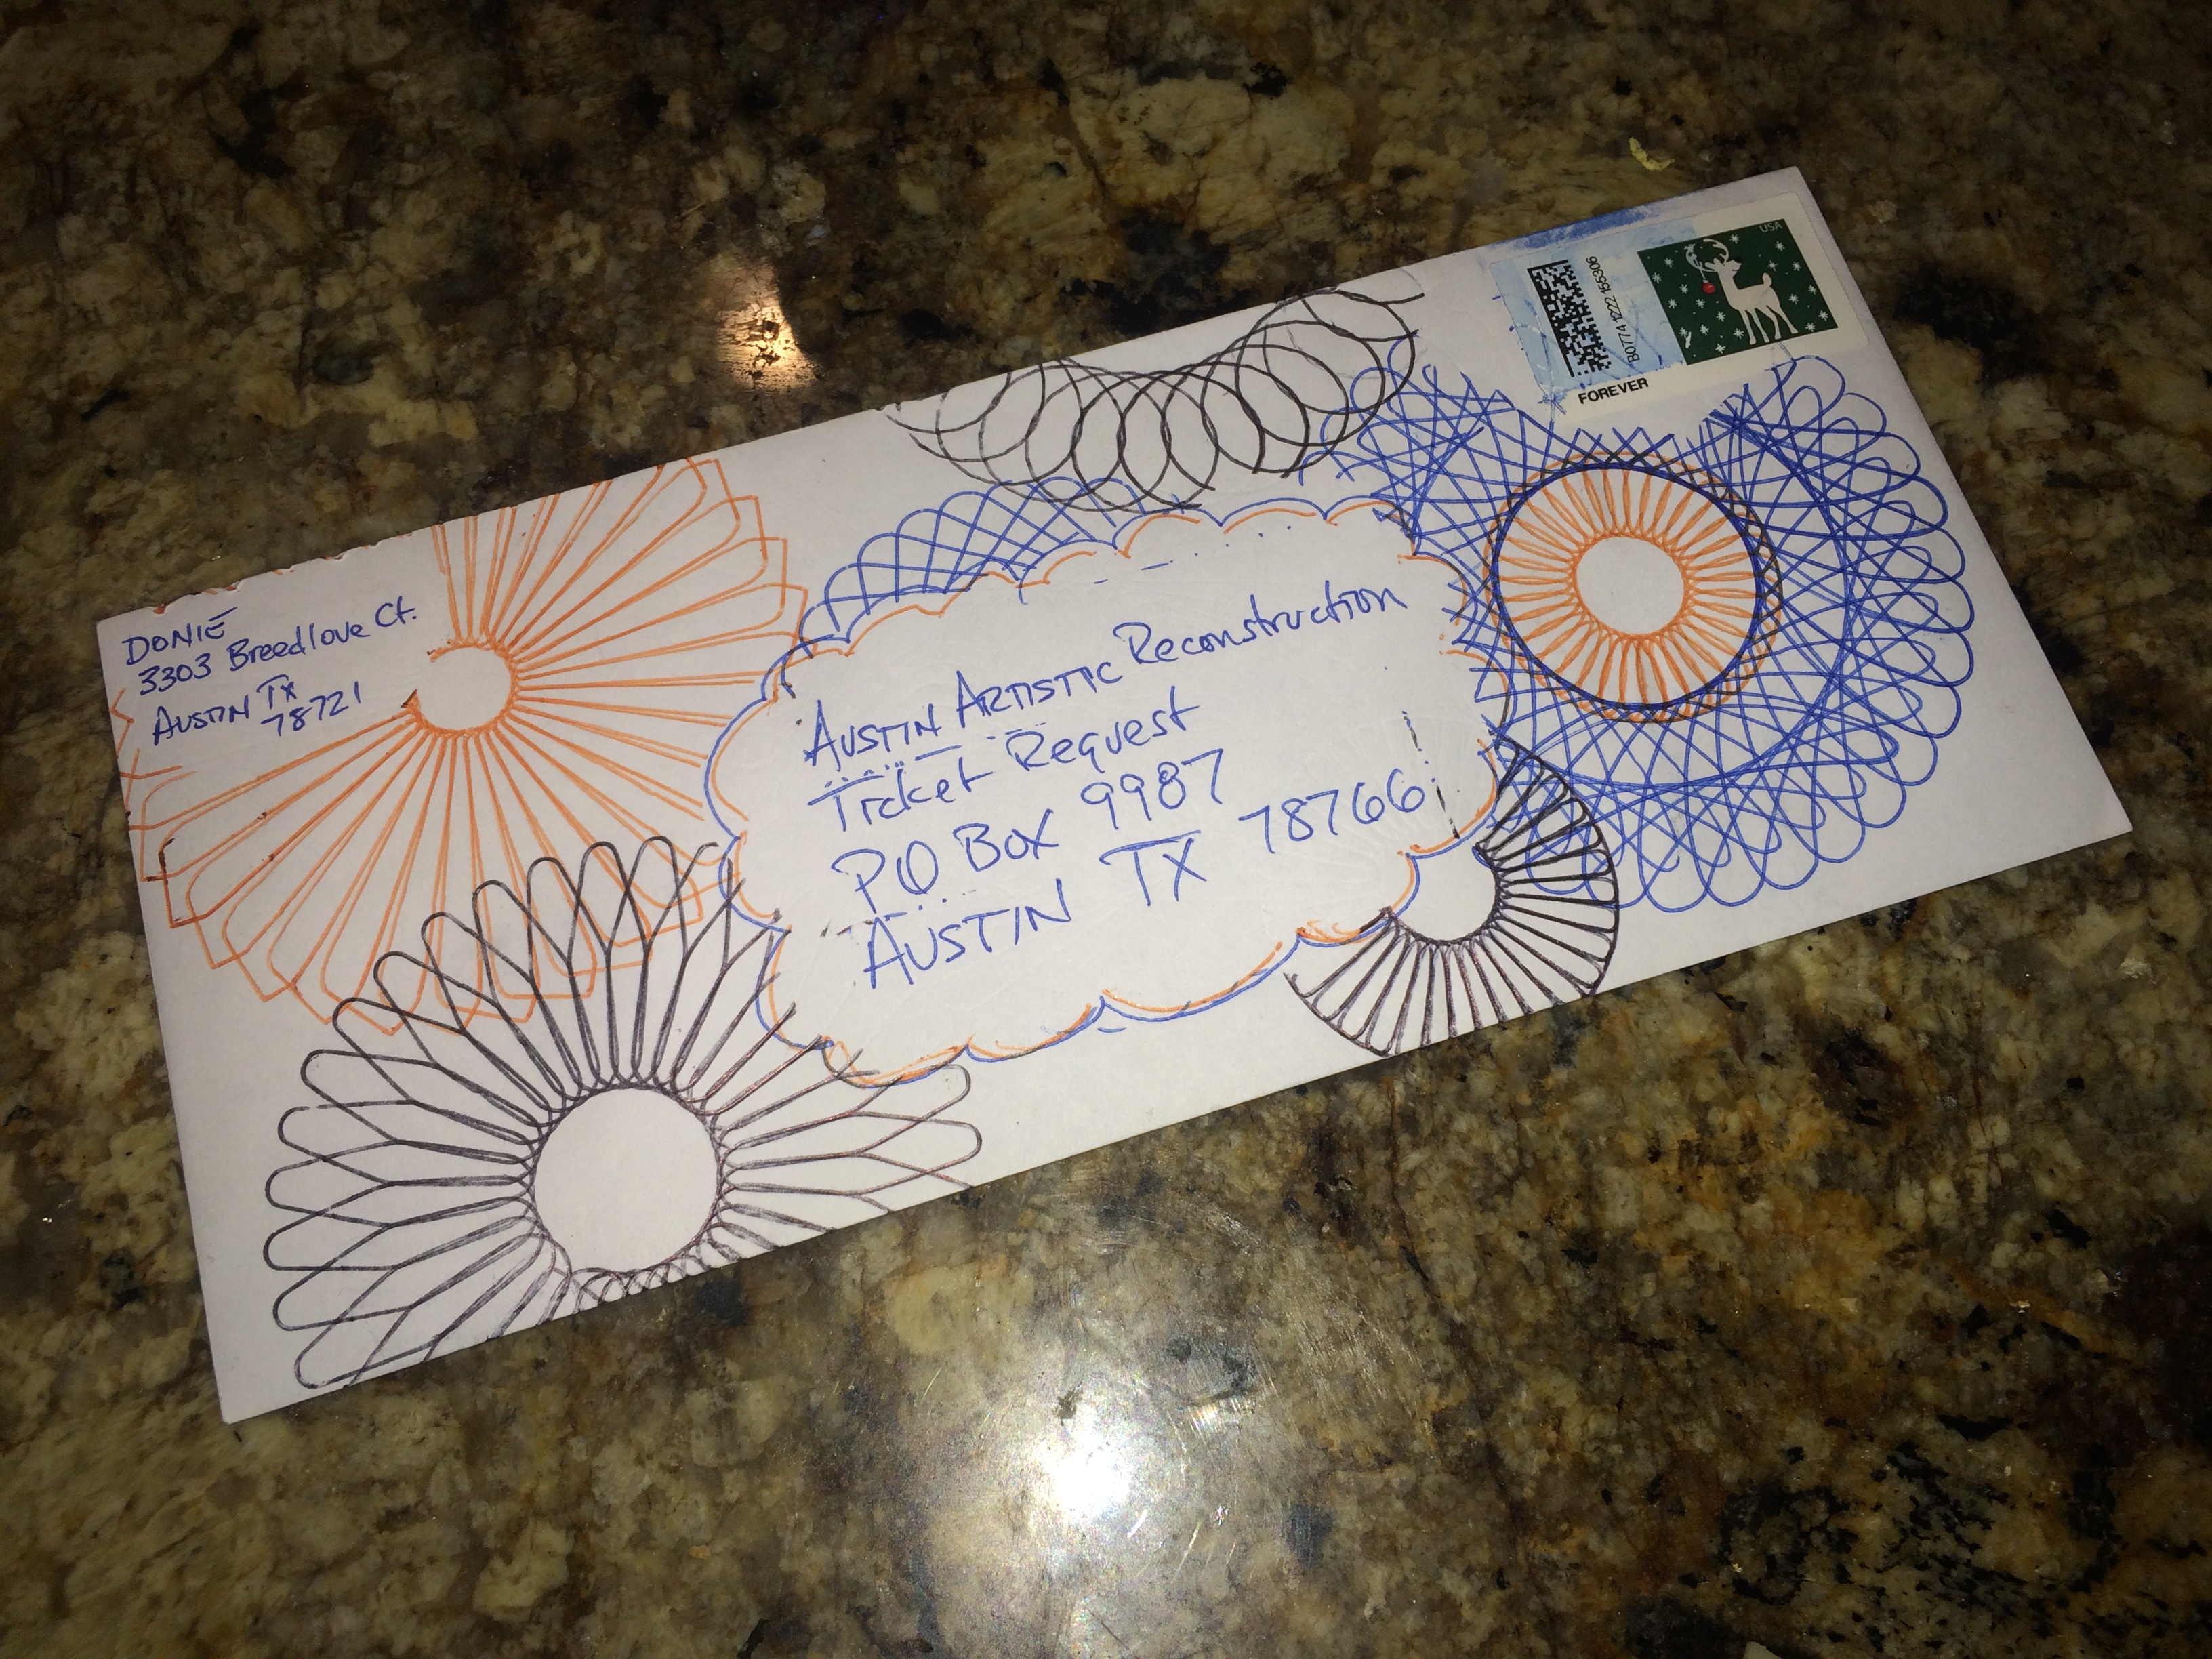 DONIE
3303 Breedlove Ct.
AUSTIN TX
78721
USA
B0774 1222 155306
FOREVER
AUSTIN ARTISTIC Reconstruction
Ticket Request
PO Box 9987
AUSTIN TX 78766